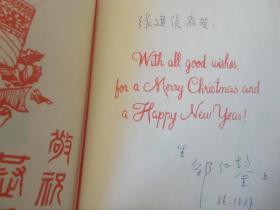 張
教授:
With all good wishes
for a Merry Christmas and
a Happy New Year!
敬祝
生
鄒仁
上
86.12.